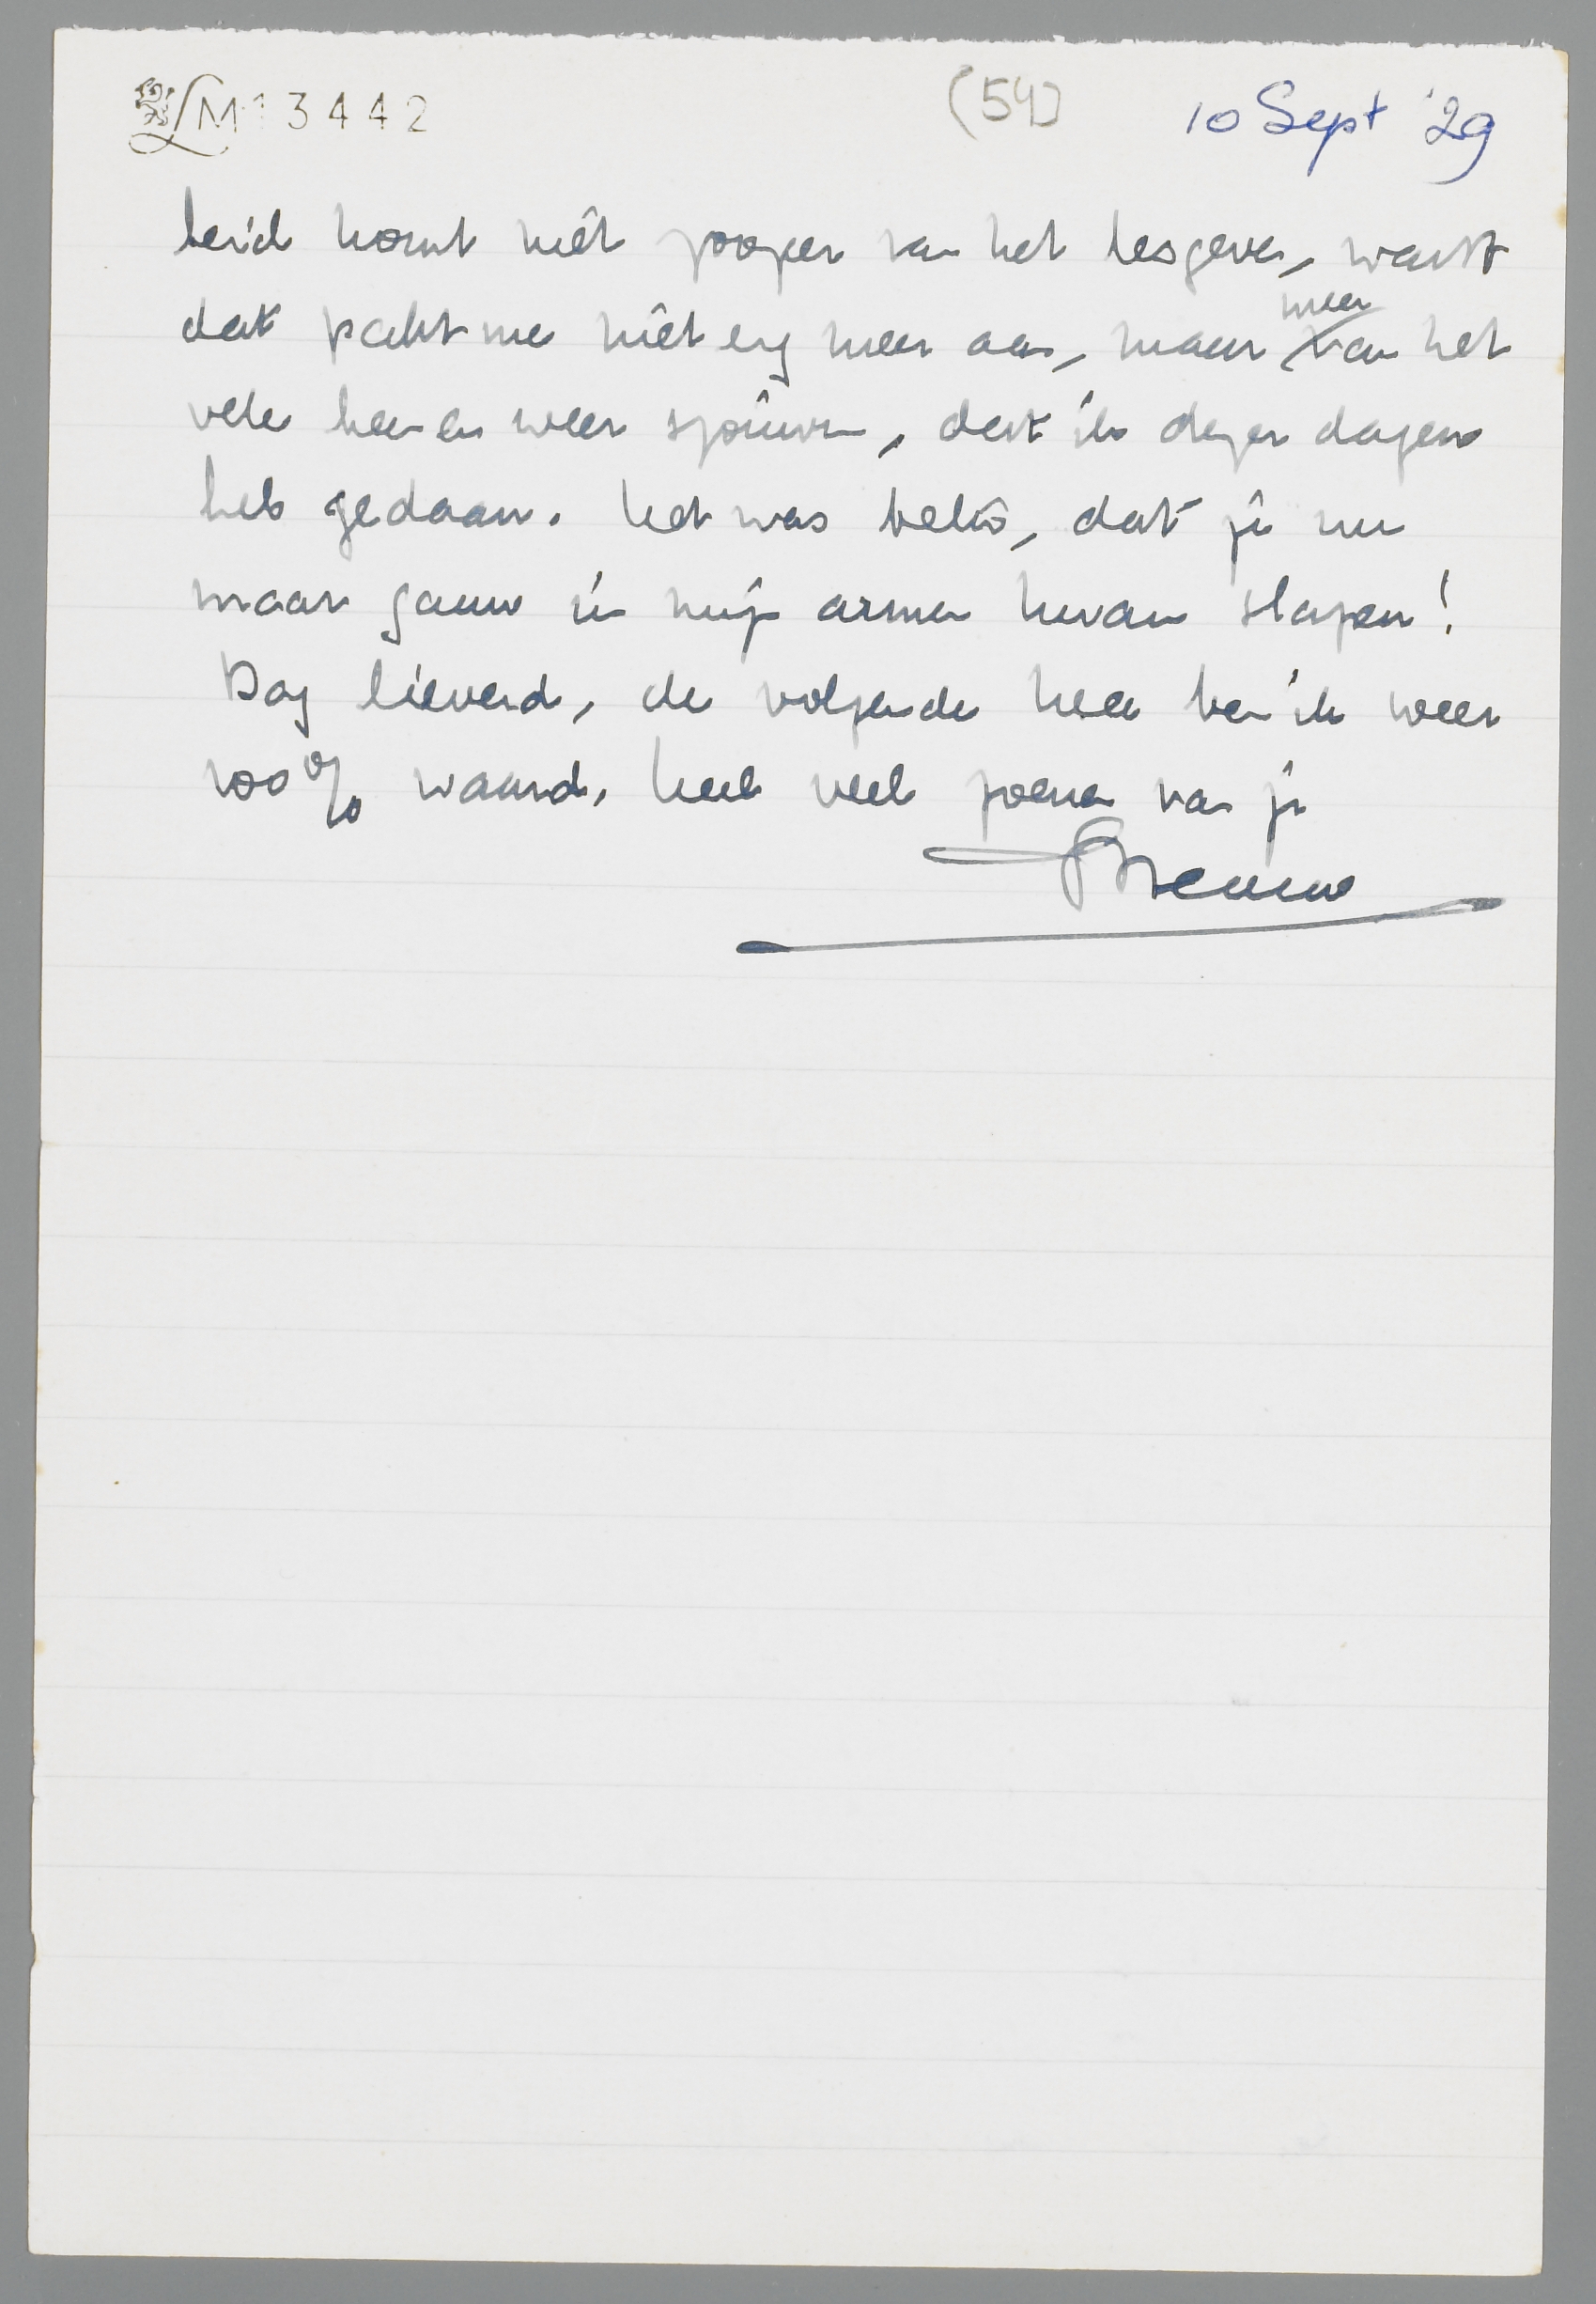 LM 13442 (54) 10 Sept '29
heid komt niet zoozeer van het lesgeven, want
dat pakt me niet erg meer aan, maar meer van het
vele heen en weer sporen, dat ik dezer dagen
heb gedaan. Het was beter, dat je nu
maar gauw in mijn armen kwam slapen!
Dag lieverd, de volgende keer ben ik weer
100% waard. Heel veel zoenen van je
Menno